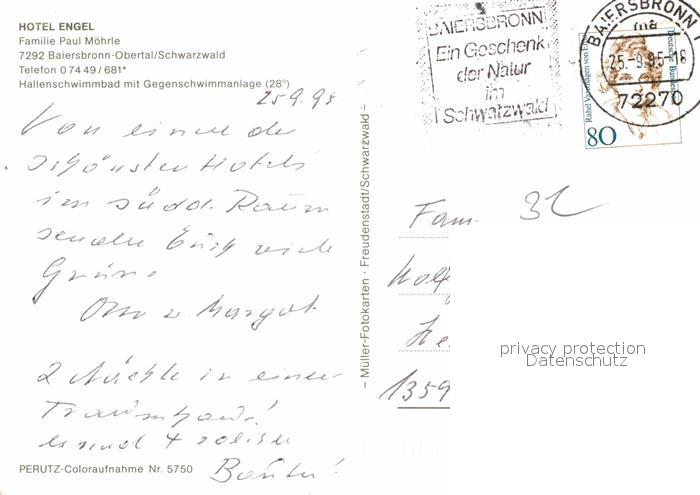 HOTEL ENGEL
Familie Paul Möhrle
7292 Baiersbronn-Obertal/Schwarzwald
Telefon 0 74 49 / 681*
Hallenschwimmbad mit Gegenschwimmanlage (28°)
25.9.95
Von einem der
schönsten Hotels
im südd. Raum
senden Euch viele
Grüße
Otto u. Margot
2 Nächte in einem
Traumhaus!
PERUTZ-Coloraufnahme Nr. 5750
– Müller-Fotokarten · Freudenstadt/Schwarzwald –
BAIERSBRONN
Ein Geschenk
der Natur
im
Schwarzwald
BAIERSBRONN 1
ma
25.-9.95-18
72270
Rahel Varnhagen von Ense
Deutsche Bundespost
80
Fam.
Wolf
He
1359
privacy protection
Datenschutz